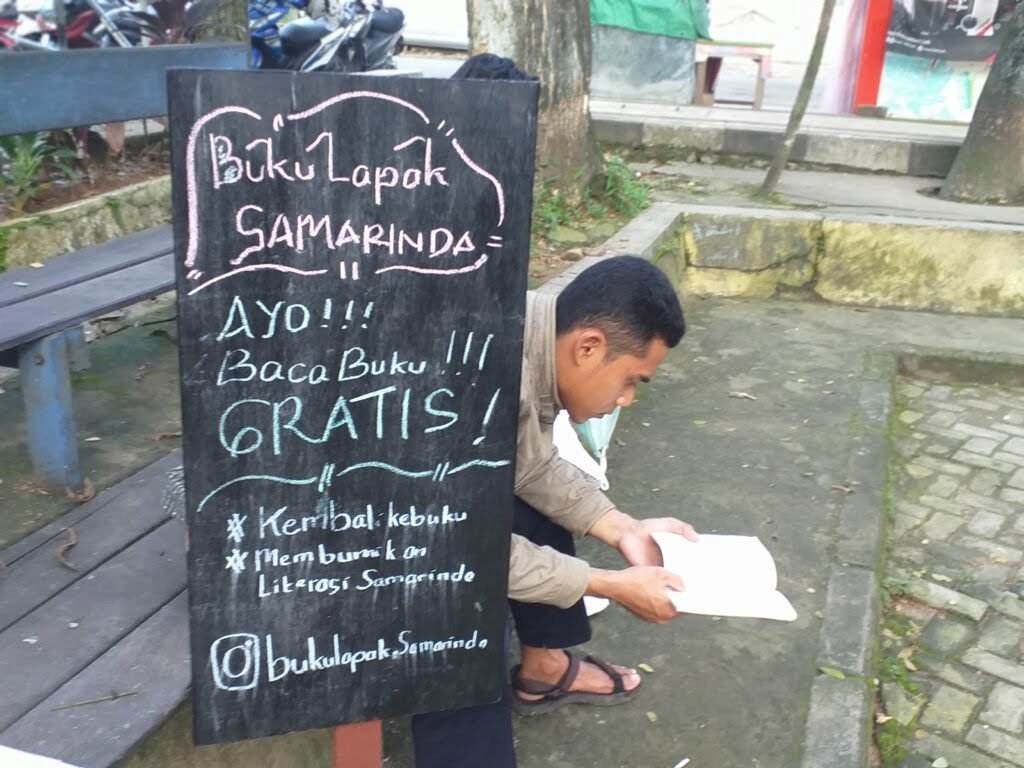 Buku Lapak
SAMARINDA
AYO!!!
Baca Buku!!!
GRATIS!
* Kembali kebuku
* Membumikan
Literasi Samarinda
bukulapak.Samarinda